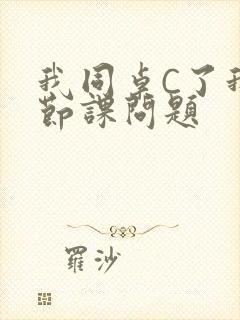 我同卓C了我
節課問題
羅沙